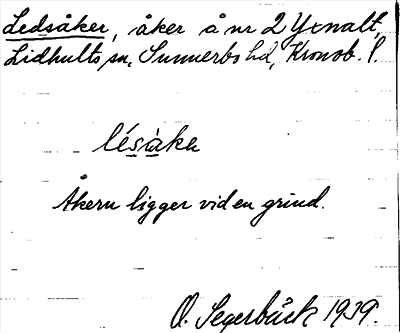 Ledsåker, åker å nr 2 Yxnalt,
Lidhults sn, Sunnerbo hd, Kronob. l.
lésàkeɹ
Åkern ligger vid en grind.
O. Segerbäck 1939.